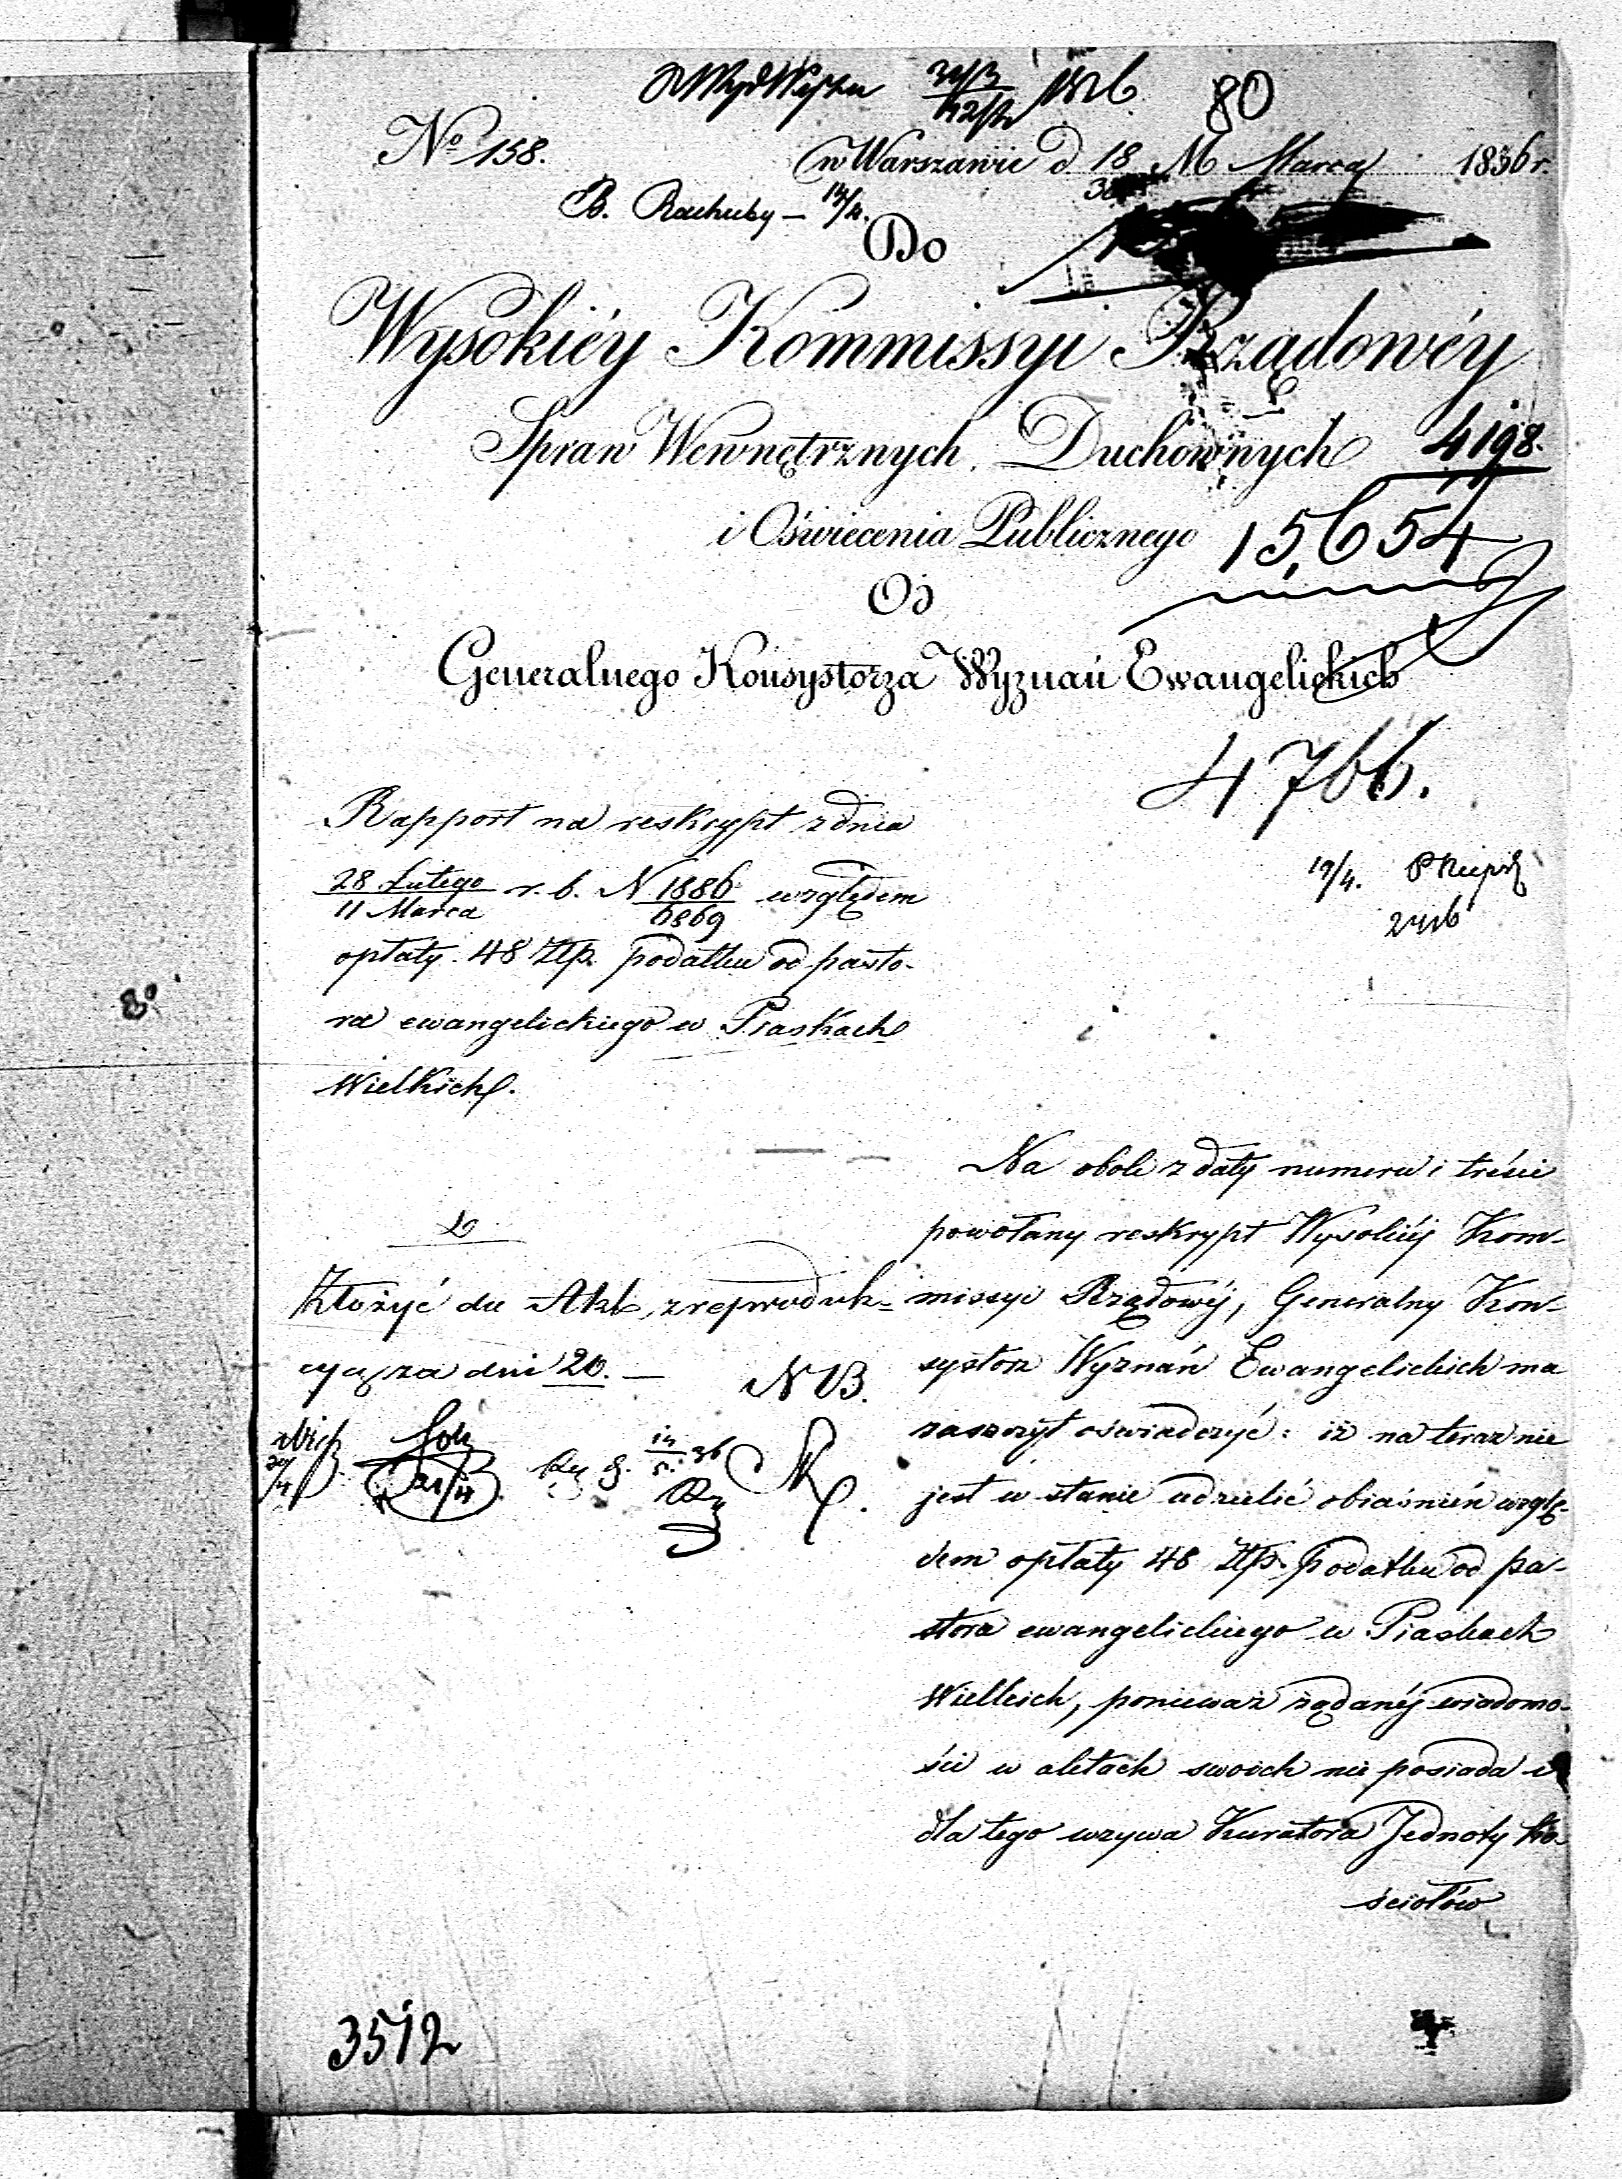 80
No 158.
w Warszawie d. 18 M Marca 1836 r.
30
B. Rachuby – 14/4.
Do
Wysokiéy Kommissyi Rządowéy
Spraw Wewnętrznych, Duchownych
4198.
i Oświecenia Publicznego
15,654
Od
Generalnego Konsystorza Wyznań Ewangelickich
4766.
Rapport na reskrypt z dnia
28 Lutego / 11 Marca r. b. N 1886 / 6869 względem
opłaty 48 Złp. podatku od pasto-
ra ewangelickiego w Piaskach
Wielkich.
19/4.
Na obok z daty numeru i treści
powołany reskrypt Wysokiéj Kom-
missyi Rządowéj, Generalny Kon-
systorz Wyznań Ewangelickich ma
zaszczyt oświadczyć: iż na teraz nie
jest w stanie udzielić obiaśnień wzglę-
dem opłaty 48 Złp. podatku od pa-
stora ewangelickiego w Piaskach
Wielkich, ponieważ żądanéj wiadomo-
ści w aktach swoich nie posiada i
dla tego wzywa Kuratora Jednoty Ko-
ściołów
Złożyć do Akt, z reproduk-
cyą za dni 20. —
NB.
3512